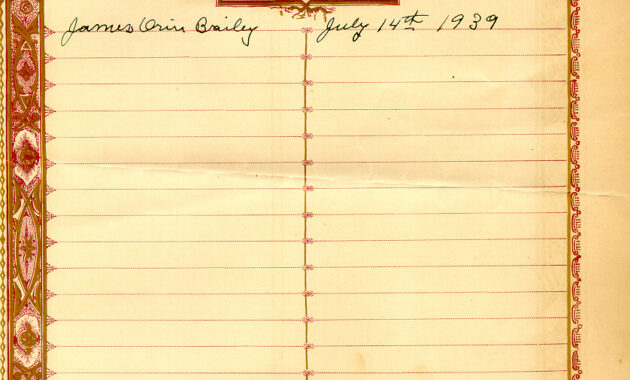 James Orin Bailey July 14th 1939